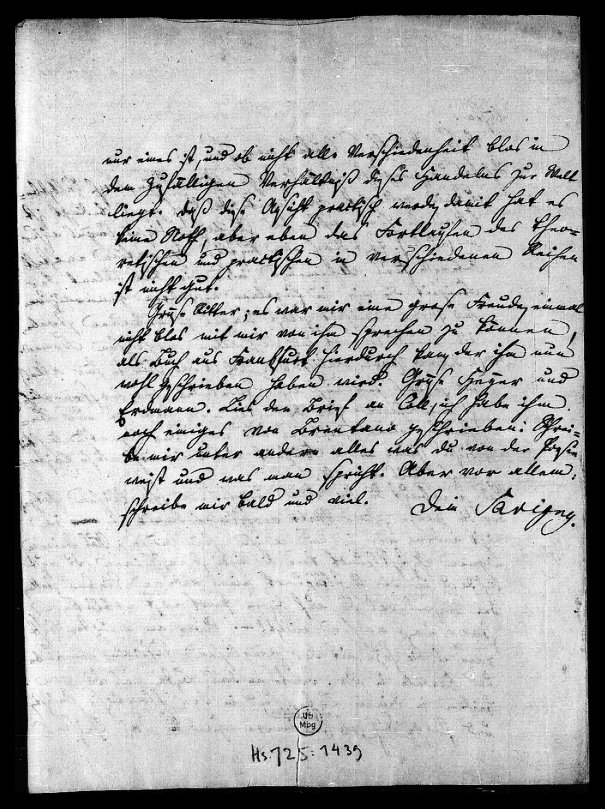 nur eines ist, und ob nicht alle Verschiedenheit blos in
dem zufälligen Verhältniß dieses Handelns zur Welt
liegt. Daß diese Ansicht practisch werde, damit hat es
keine Noth, aber eben das Fortlaufen des theo-
retischen und practischen in verschiedenen Reihen
ist nicht gut.
Grüße Ritter; es war mir eine große Freude, einmal
nicht blos mit mir von ihm sprechen zu können,
als Buch aus Frankfurt hierdurch kam, der ihm nun
wohl geschrieben haben wird. Grüße Heyer und
Erdmann. Lies den Brief an , ich habe ihm
noch einiges von Brentano geschrieben. Schrei-
be mir unter andern alles was du von der Poesie
weist und was man spricht. Aber vor allem:
schreibe mir bald und viel. Dein Savigny.
UB
Mbg
Hs. 725:1439